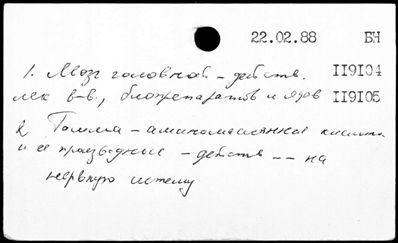 22.02.88 БН
1. Мозг головной – действ. 119104
лек в-в., биопрепаратов и ядов 119105
2. Гамма – аминомасляная кислота
и ее производные – действ -- на
нервную систему